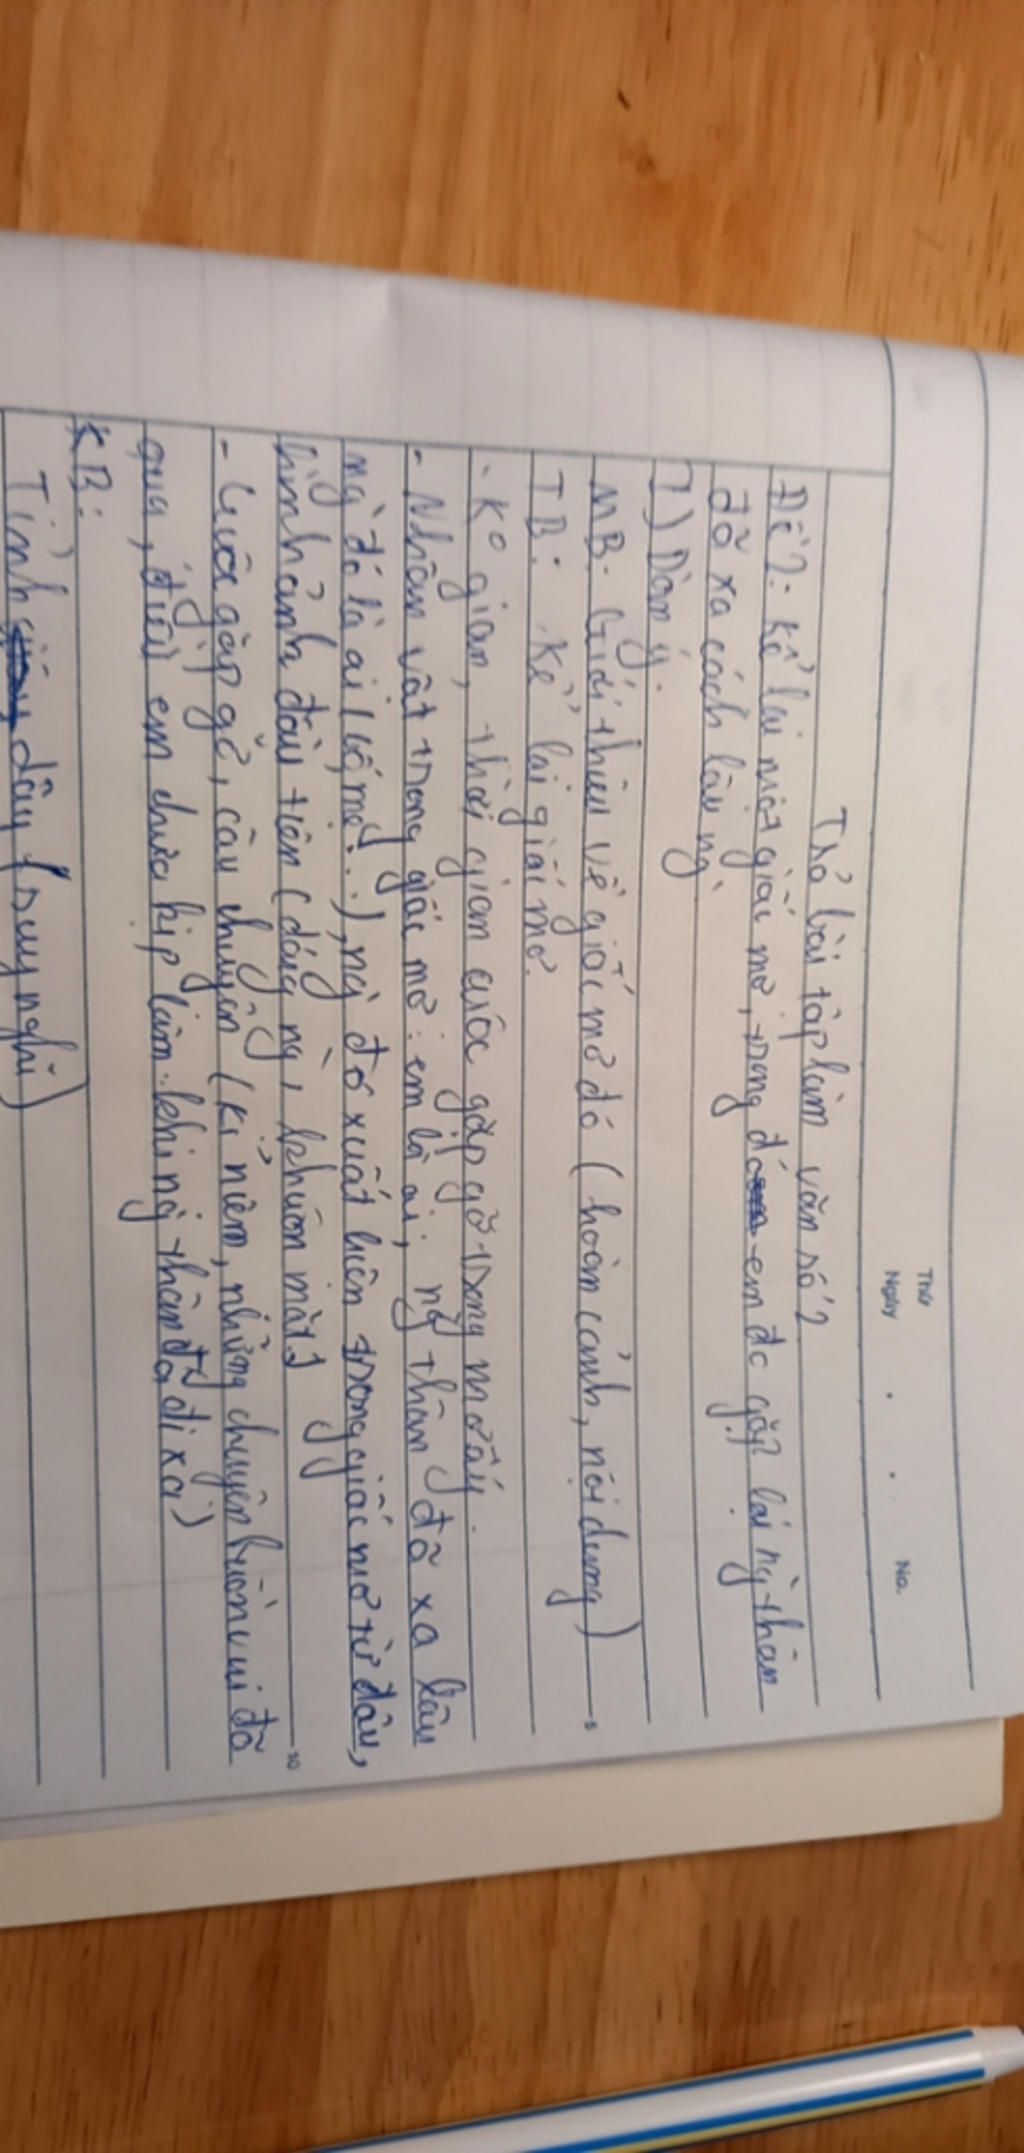 Thứ
Ngày . . No.
Trả bài tập làm văn số 2
Đề 2: Kể lại một giấc mơ, trong đó em đc gặp lại ng` thân
đã xa cách lâu ng`
1) Dàn ý.
MB: Giới thiệu về giấc mơ đó (hoàn cảnh, nội dung)
5
TB: Kể lại giấc mơ.
- Ko gian, thời gian cuộc gặp gỡ trong mơ ấy.
- Nhân vật trong giấc mơ: em là ai; ng` thân đã xa lâu
ng` đó là ai (bố, mẹ...), ng` đó xuất hiện trong giấc mơ từ đâu,
hình ảnh đầu tiên (dáng ng`, khuôn mặt)
10
- Cuộc gặp gỡ, câu chuyện (kỉ niệm, những chuyện buồn vui đã
qua, điều em chưa kịp làm khi ng` thân đã đi xa)
KB:
Tỉnh dậy (suy nghĩ)